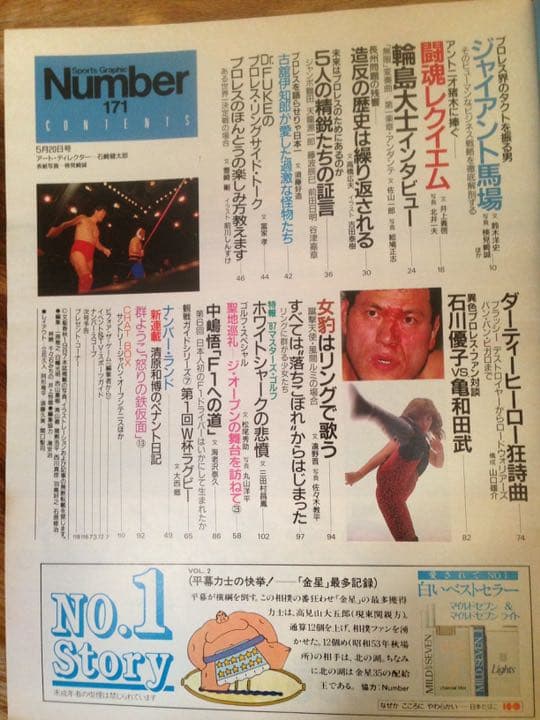 Sports Graphic
Number
171
CONTENTS
5月20日号
アート・ディレクター―石崎健太郎
表紙写真―検見﨑誠
プロレス界のタクトを振る男
ジャイアント馬場
そのヒューマンなビジネス戦略を徹底解剖する
文 鈴木洋史
写真 検見﨑誠
ほか
10
アントニオ猪木に捧ぐ
闘魂レクイエム
文 井上義啓
写真 北井一夫
18
「無限」変奏曲 第一楽章・アンダンテ
輪島大士インタビュー
文 佐山一郎
写真 船場正志
24
長州問題の残響
造反の歴史は繰り返される
文 高橋広夫
イラスト 吉田泰樹
30
未来はプロレスのためにあるのか
5人の精鋭たちの証言
ジャンボ鶴田 天龍源一郎 藤波辰巳 前田日明 谷津嘉章
36
プロレスを語らせりゃ日本一
古舘伊知郎が愛した「過激な怪物たち」
文 須藤好造
42
Dr.FUKEの
プロレス・リングサイド・トーク
文 富家孝
44
プロレスのほんとうの楽しみ方教えます
ある世界一決定戦の場合
文 景崎剛
イラスト 前川しんすけ
46
ダーティーヒーロー狂詩曲
ブラッシー、デストロイヤーからロード・ウォリアーズ、
バンバン・ビガロまで
構成 山口雄介
74
異色プロレス・ファン対談
石川優子VS亀和田武
82
女豹はリングで歌う
蹴撃天使・風間ルミの場合
文 遠野晋
写真 佐々木教平
94
すべては“落ちこぼれ”からはじまった
リングに群がる少女たち
97
特報 ’87マスターズ・ゴルフ
ホワイトシャークの悲憤
文 三田村昌鳳
102
ゴルフ・スペシャル
聖地巡礼 ジ・オープンの舞台を訪ねて③
文 松尾秀助
写真 丸山洋平
58
中嶋悟「F1への道」
第6回 日本人初のF1ドライバーはいかにして生まれたか
文 海老沢泰久
86
観戦ガイドシリーズ⑦ 第1回W杯ラグビー
文 大西郷
65
ナンバー・ランド
49
新連載 清原和博のペナント日記
92
群ようこ「怒りの鉄仮面」⑬
10
CHAT BOX
VOL. 2
(平幕力士の快挙!――「金星」最多記録)
NO.1
Story
平幕が横綱を倒す。この相撲の番狂わせ「金星」の最多獲得
力士は、高見山大五郎(現東関親方)。
通算12個を上げ、相撲ファンを湧
かせた。12個め(昭和53年秋場
所)の相手は、北の湖。ちなみ
に北の湖は、金星35の配給
王である。 協力:Number
未成年者の喫煙は禁じられています
愛されてNO.1
白いベストセラー
マイルドセブン &
マイルドセブン ライト
MILD SEVEN
MILD SEVEN
Lights
なぜか こころに やわらかい――日本たばこ